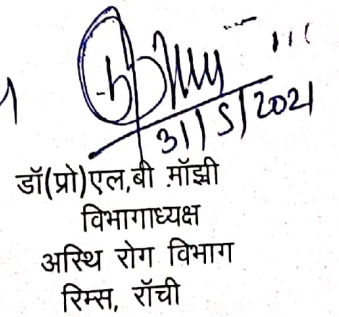 31/5/2021
डॉ(प्रो)एल.बी .मॉझी
विभागाध्यक्ष
अस्थि रोग विभाग
रिम्स, रॉची